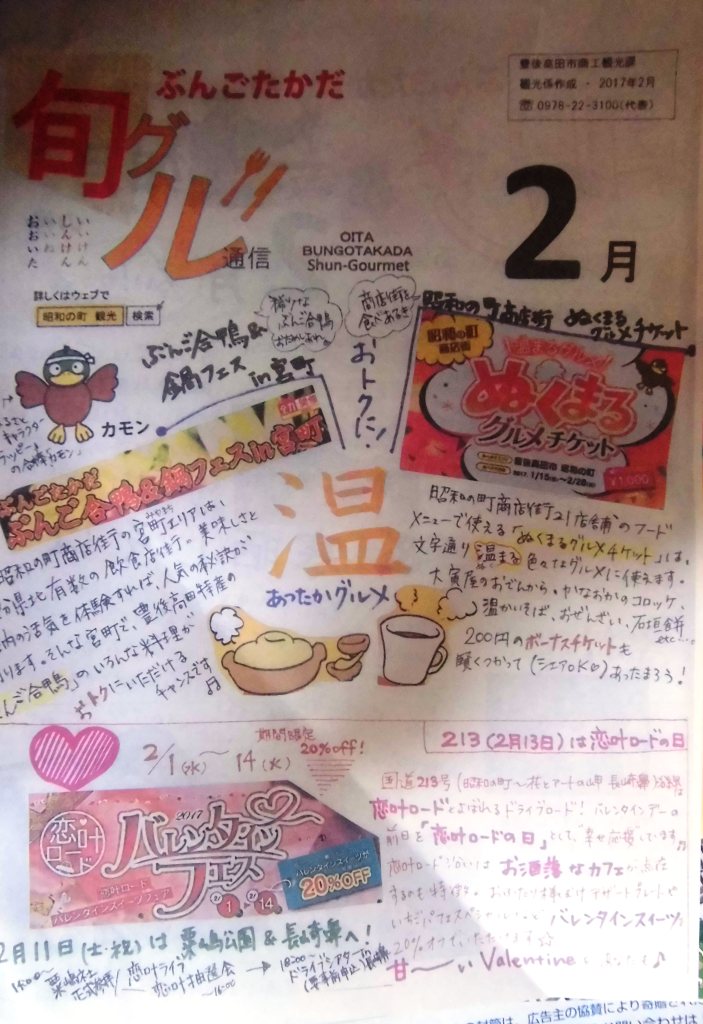 ぶんごたかだ
旬グル
通信
豊後高田市商工観光課
観光係作成・2017年2月
☎0978-22-3100(代表)
OITA
BUNGOTAKADA
Shun-Gourmet
2月
詳しくはウェブで
昭和の町 観光 検索
ぶんご合鴨&
鍋フェス
in宮町
カモン
商店街を
食べあるき
おトクに!
昭和の町商店街 ぬくまる
グルメチケット
昭和の町
商店街
ぬくまる
グルメチケット
豊後高田市 昭和の町
¥1,000
ぶんごたかだ
ぶんご合鴨&鍋フェスin宮町
温
あったかグルメ
昭和の町商店街の宮町エリアは、
県北有数の飲食店街。美味しさと
の活気を体験すれば、人気の秘訣が
ります。そんな宮町で、豊後高田特産の
ぶんご合鴨」のいろんな料理が
おトクにいただける
チャンスです♫
昭和の町商店街21店舗のフード
メニューで使える「ぬくまるグルメチケット」は、
文字通り温まる色々なグルメに使えます。
大寅屋のおでんから、かなおかのコロッケ、
温かいそば、おぜんざい、石垣餅
etc…
200円のボーナスチケットも
賢くつかって(シェアOK)あったまろう!
期間限定
2/1(水)〜14(火)
20%off!
2017
恋叶ロード
バレンタイン
フェス
恋叶ロード
バレンタインスイーツフェア
2/1 2/14
バレンタインスイーツが
20%OFF
213(2月13日)は恋叶ロードの日
国道213号(昭和の町〜花とアートの岬 長崎鼻)沿線は
恋叶ロードとよばれるドライブロード!バレンタインデーの
前日を「恋叶ロードの日」として、幸せ応援しています♫
恋叶ロード沿いは お洒落なカフェが点在
するのも特徴。
バレンタインスイーツが
20%オフで
甘〜い Valentine
2月11日(土・祝)は 粟嶋公園&長崎鼻へ!
恋叶ライブ
恋叶抽選会
〜16:00
18:00〜
ドライブシアター in
(要事前申込)長崎鼻
広告主の協賛により寄贈され